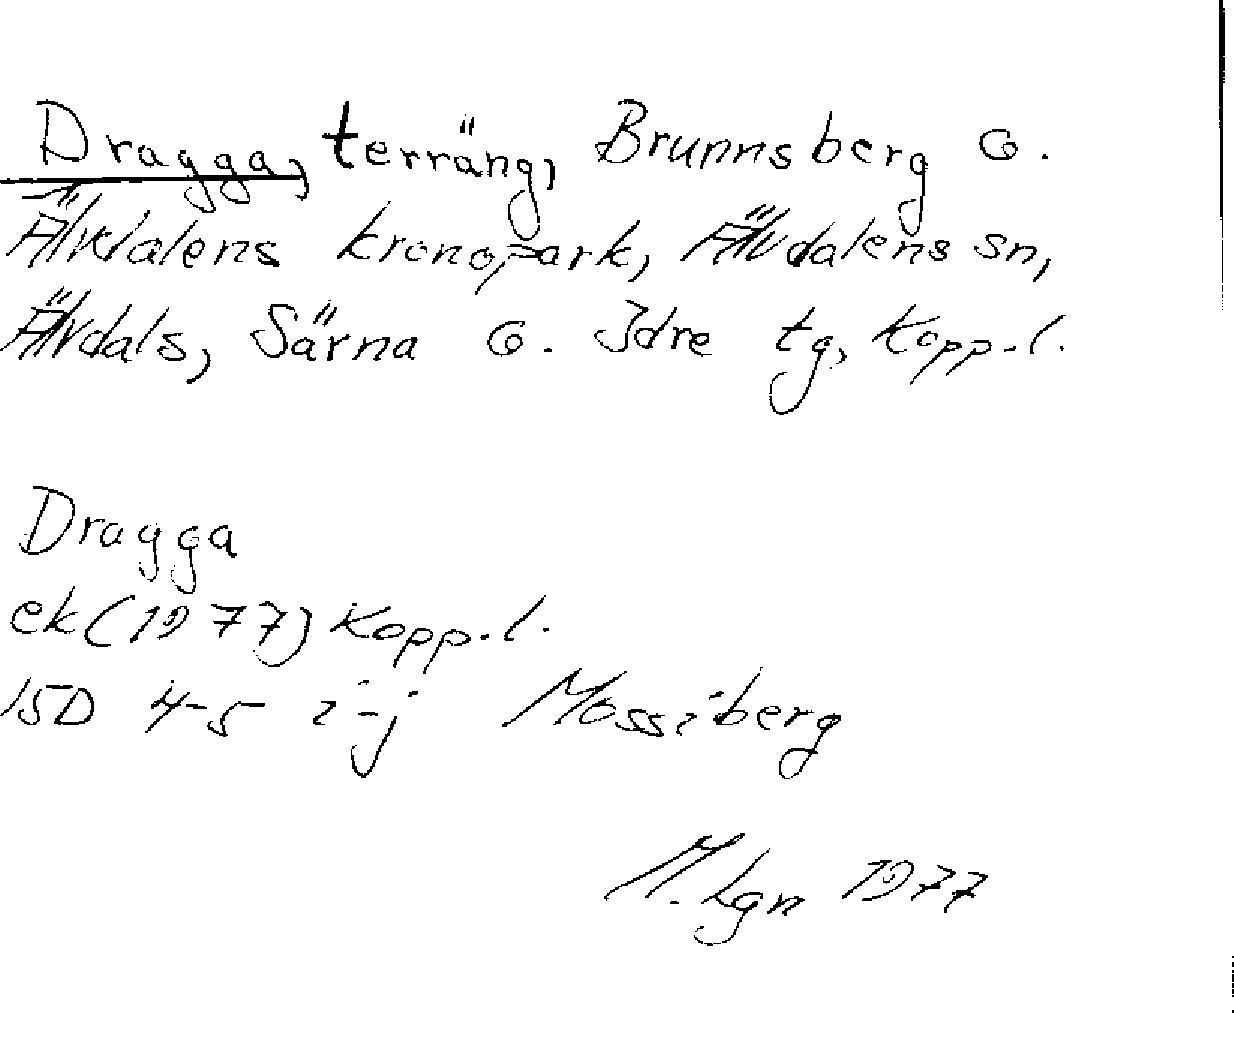 Dragga, terräng, Brunnsberg o.
Älvdalens kronopark, Älvdalens sn,
Älvdals, Särna o. Idre tg, Kopp.l.
Dragga
ek (1977) Kopp.l.
15D 4-5 i-j Mossiberg
M. Lgn 1977